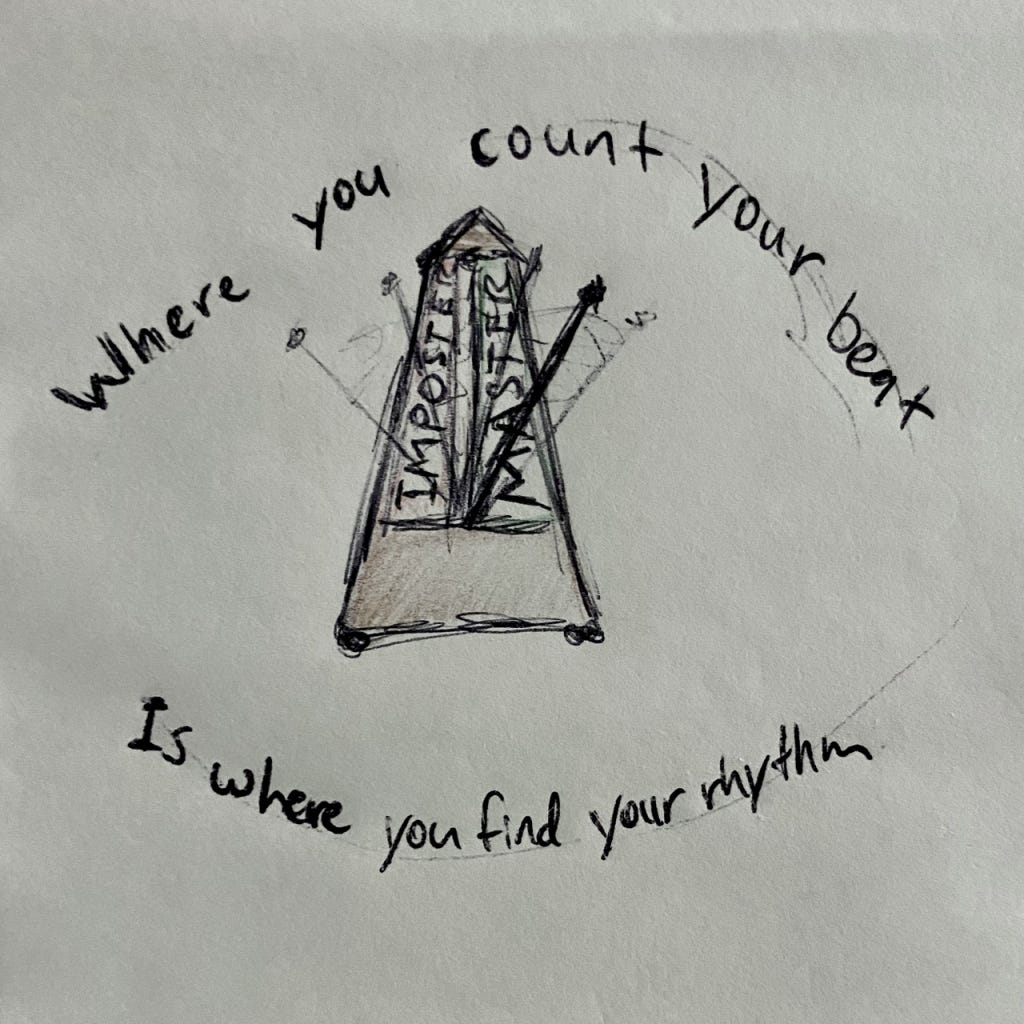 Where you count your beat
IMPOSTER
MASTER
Is where you find your rhythm